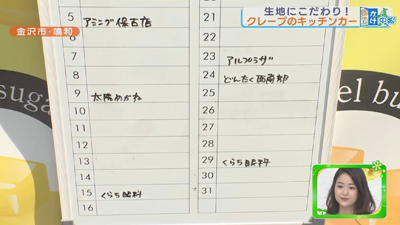 金沢市・鳴和
生地にこだわり！
クレープのキッチンカー
5 アミング保古店
6
7
8
9 太陽めがね
10
13
14
15 くらち眼科
16
21
23 アルプラザ
24 どんたく西南部
25
26
27
28
29 くらち眼科
30
31
suga
el bu